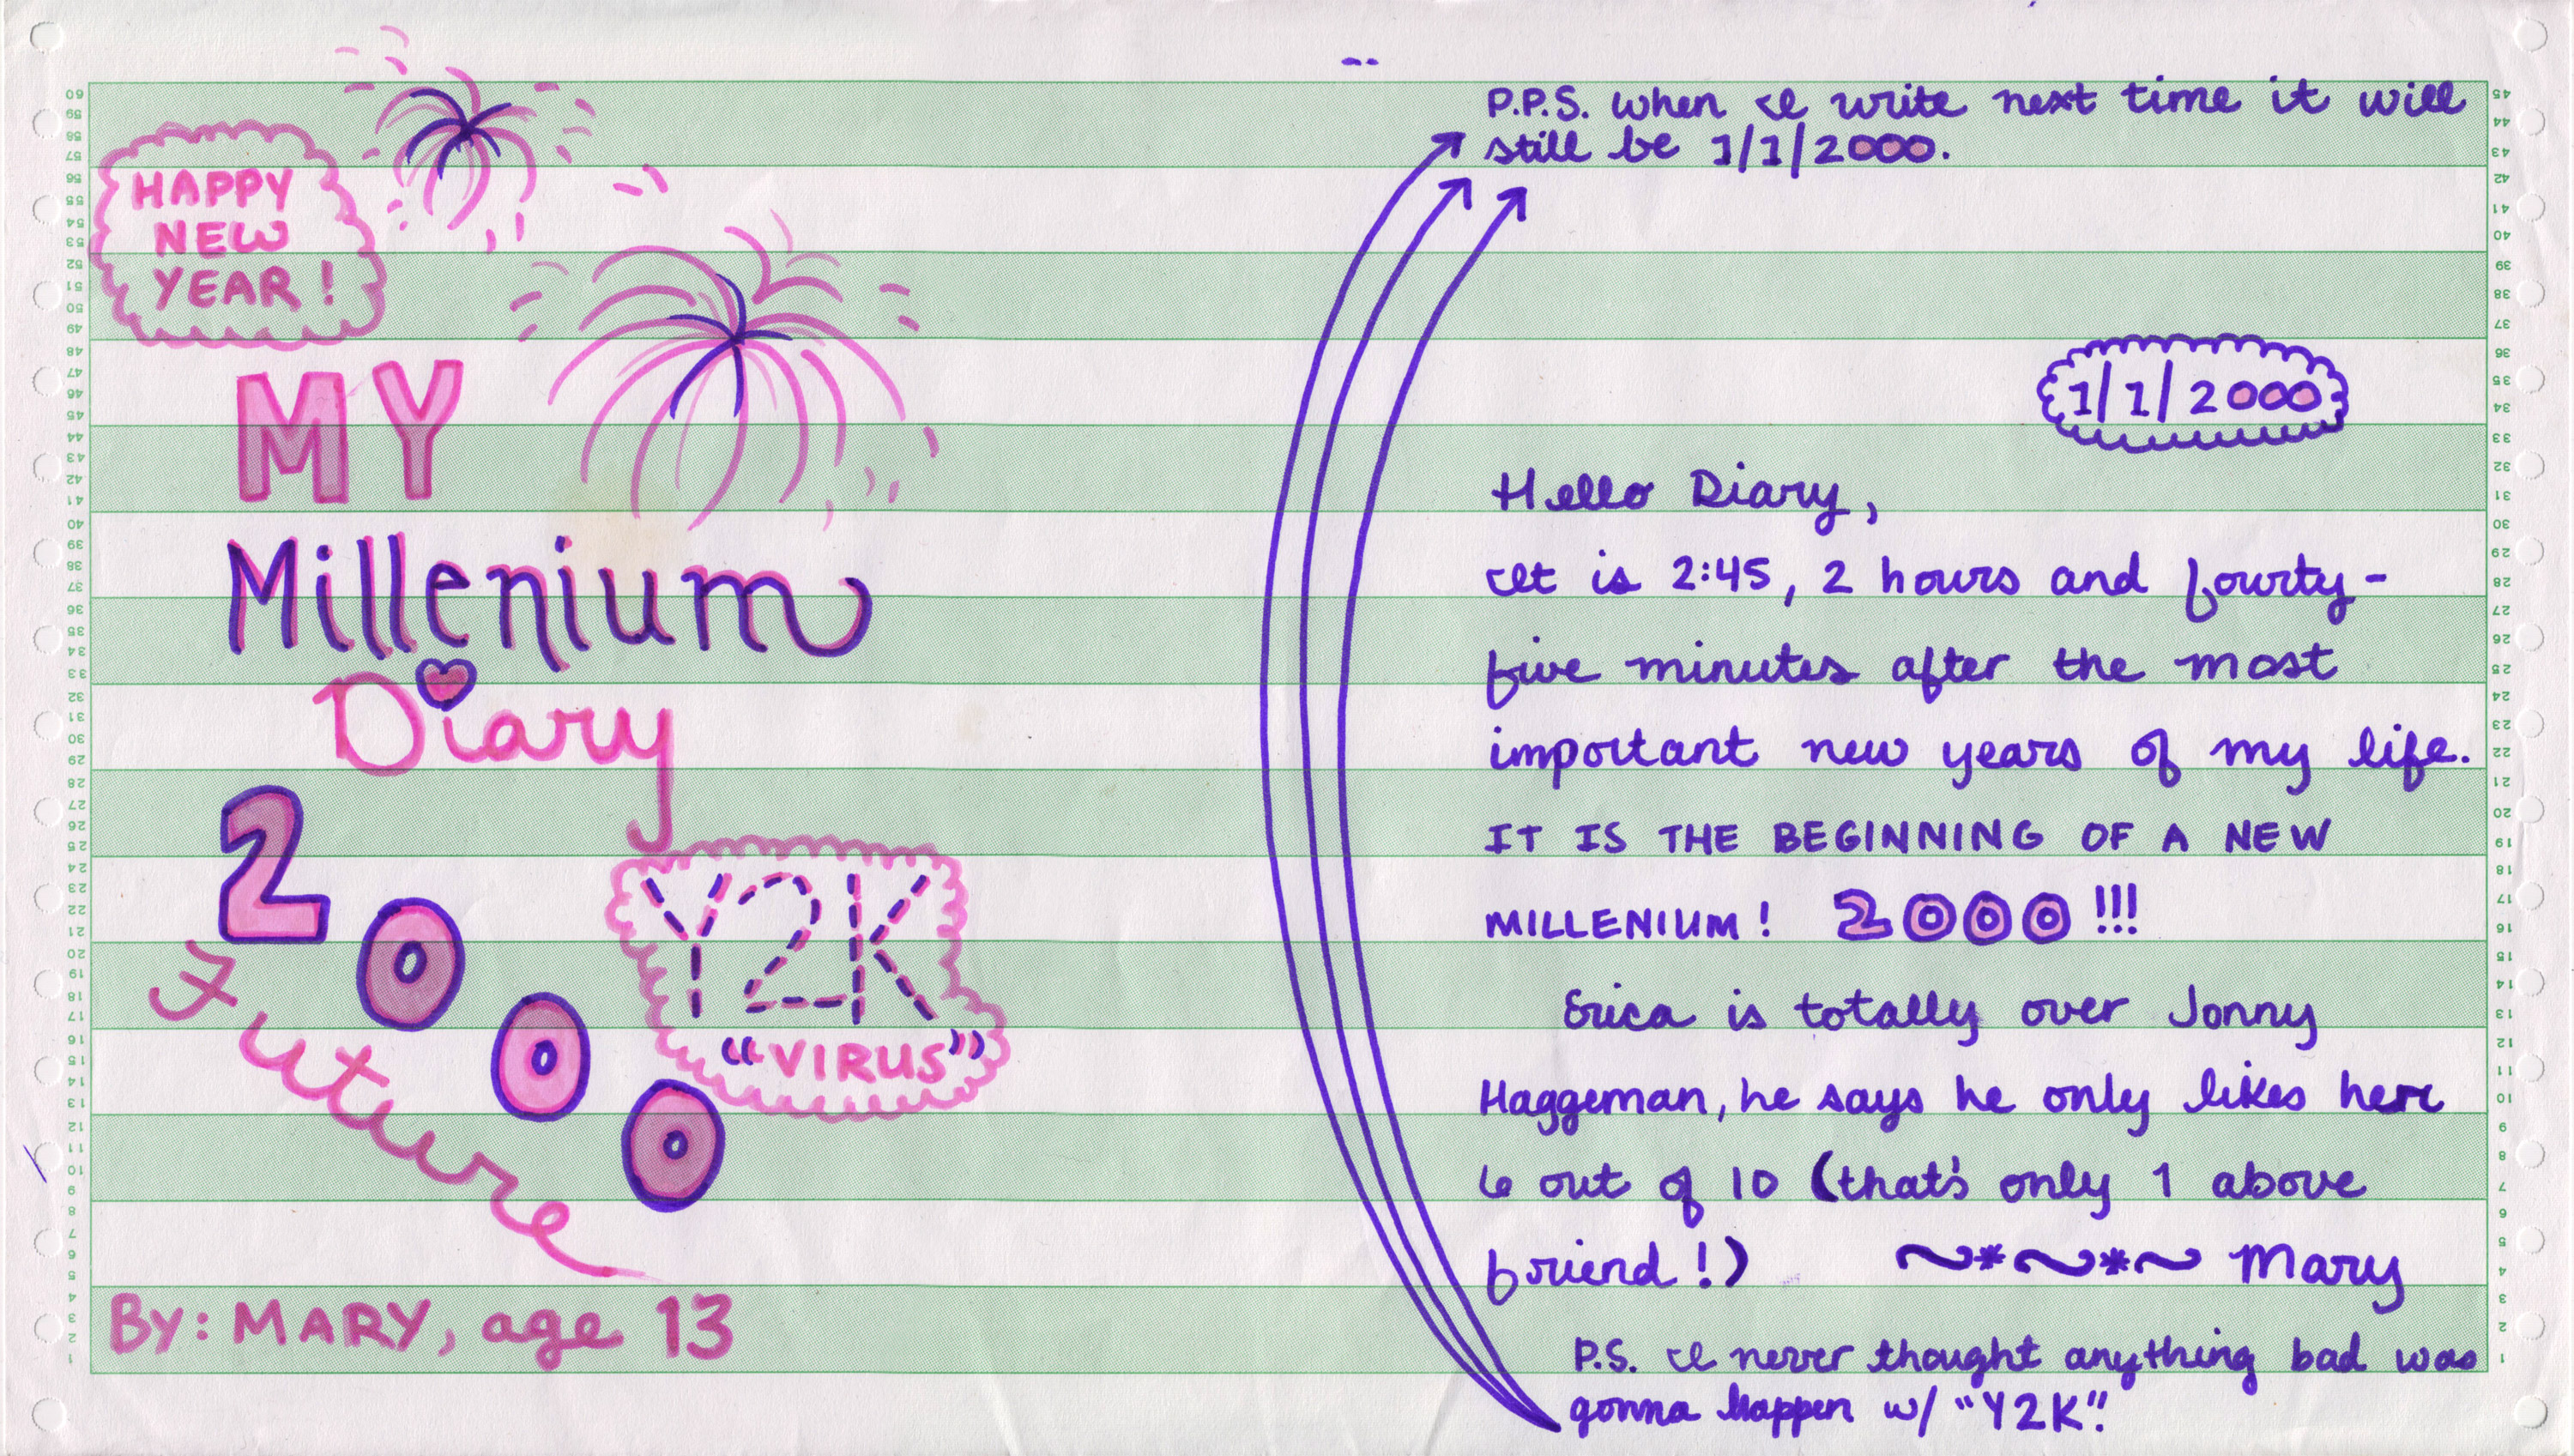 HAPPY
NEW
YEAR!
MY
Millenium
Diary
2000
Future
Y2K
"VIRUS"
By: MARY, age 13
1/1/2000
Hello Diary,
It is 2:45, 2 hours and fourty-
five minutes after the most
important new years of my life.
IT IS THE BEGINNING OF A NEW
MILLENIUM! 2000!!!
Erica is totally over Jonny
Haggeman, he says he only likes her
6 out of 10 (that's only 1 above
friend!) ~*~*~ Mary
P.S. I never thought anything bad was
gonna happen w/ "Y2K"!
P.P.S. when I write next time it will
still be 1/1/2000.